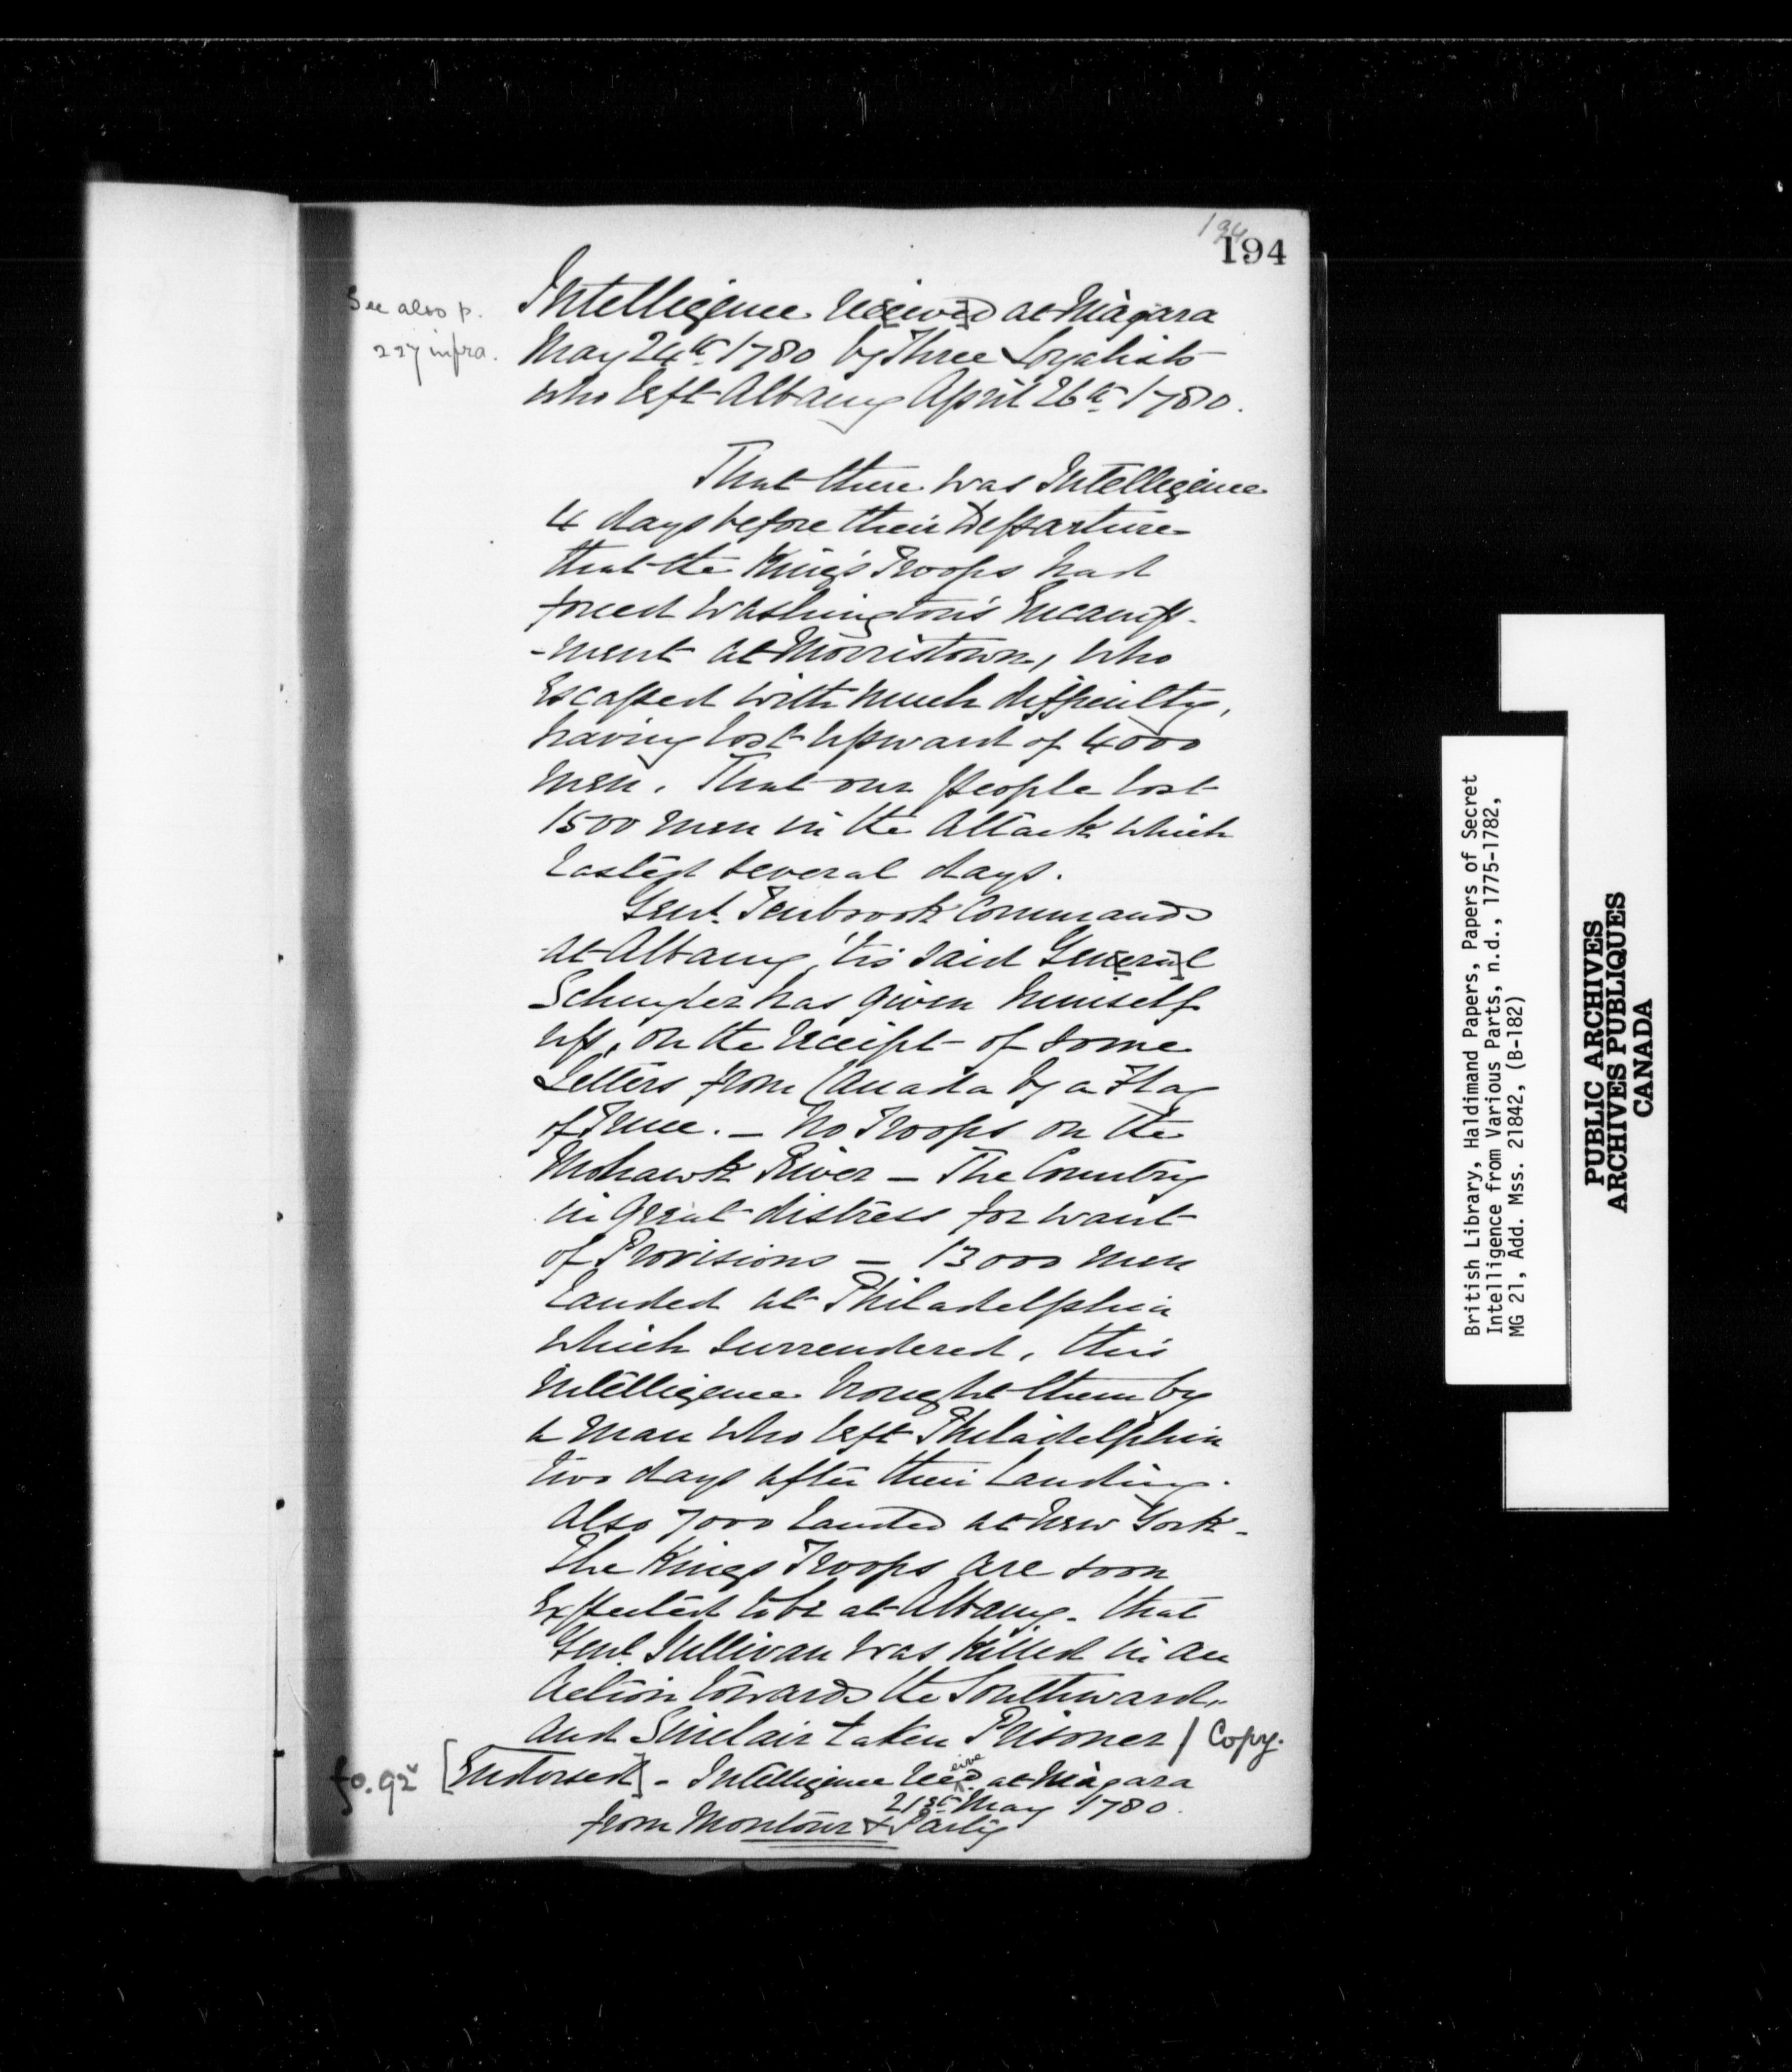 194
194
See also p.
227 infra.
Intelligence rec[eive]d at Niagara
May 24th 1780 by Three Loyalists
who left Albany April 26th 1780.
That there was Intelligence
4 days before their Departure
that the King's Troops had
forced Washington's Encamp-
-ment at Morristown, who
Escaped with much difficulty,
having lost upward of 4000
men. That our people lost
1500 men in the Attack which
lasted several days.
Genl. Tenbrook Commands
at Albany, 'tis said Gen[era]l
Schuyler has given himself
up, on the receipt of some
Letters from Canada by a Flag
of Truce. – No Troops on the
Mohawk River – The Country
in great distress for want
of Provisions – 13000 men
landed at Philadelphia
which surrendered, this
intelligence brought them by
a man who left Philadelphia
two days after their landing.
Also 7000 landed at New York –
The Kings Troops are soon
Expected to be at Albany. that
Genl. Sullivan was killed in an
Action towards the Southward,
and Sinclair taken Prisoner / Copy.
fo. 92v [Endorsed] – Intelligence received at Niagara
21st May 1780.
from Montour & Party
British Library, Haldimand Papers, Papers of Secret
Intelligence from Various Parts, n.d., 1775-1782,
MG 21, Add. Mss. 21842, (B-182)
PUBLIC ARCHIVES
ARCHIVES PUBLIQUES
CANADA